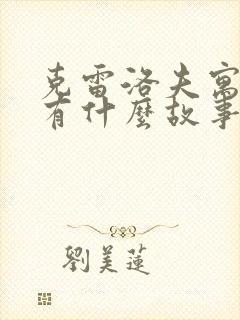 克雷洛夫寓
有什麼故事
劉美蓮